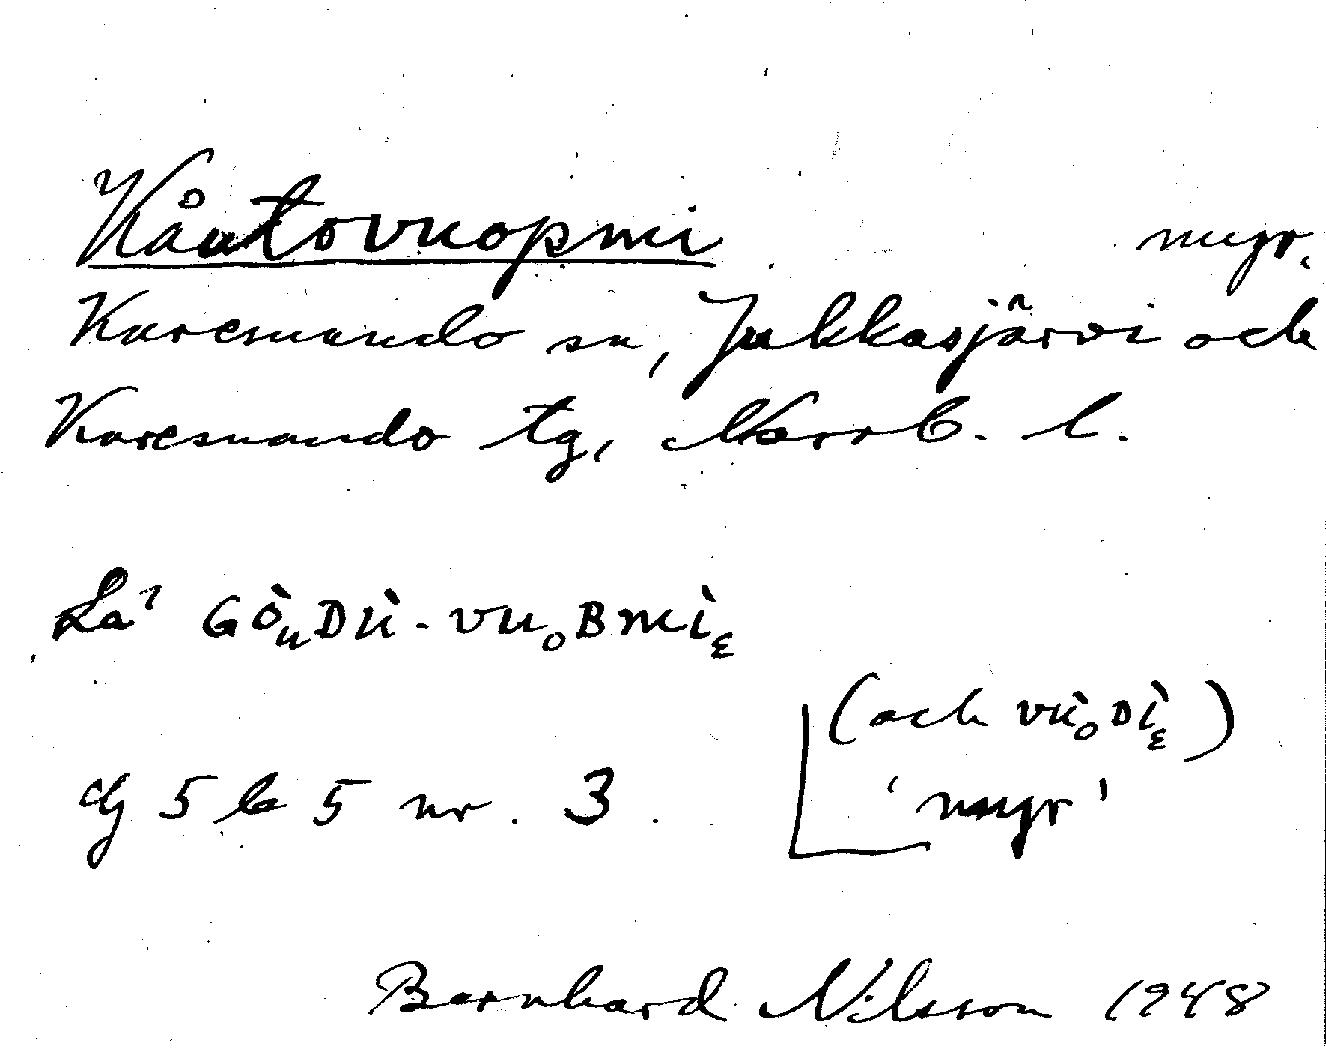 Kåutovuopmi myr.
Karesuando sn, Jukkasjärvi och
Karesuando tg, Norrb. l.
La' GÒᵤDÙ-vuₒBmÌ
(och vÙₒDÌ)
'myr'
5 b 5 nr. 3.
Bernhard Nilsson 1948